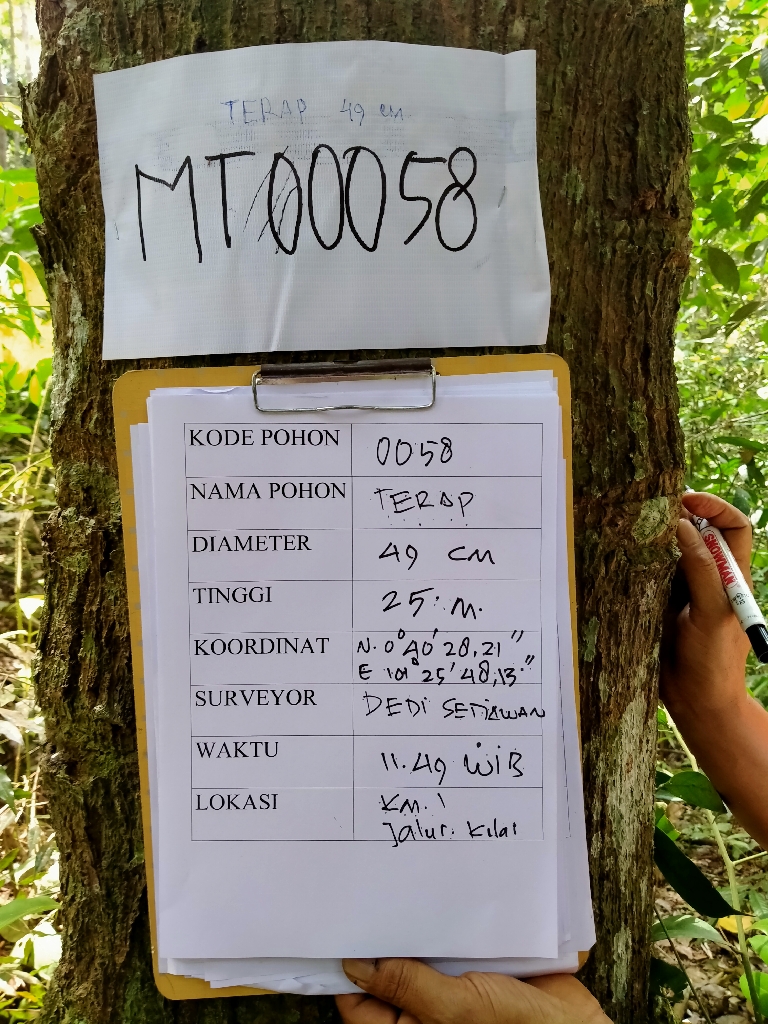 TERAP 49 cm
MT00058
KODE POHON 0058
NAMA POHON TERAP
DIAMETER 49 CM
TINGGI 25 M.
KOORDINAT N. 0° 40' 28,21"
E 101° 25' 48,13"
SURVEYOR DEDI SETIAWAN
WAKTU 11.49 WIB
LOKASI KM. 1
Jalur. kilat
SNOWMAN